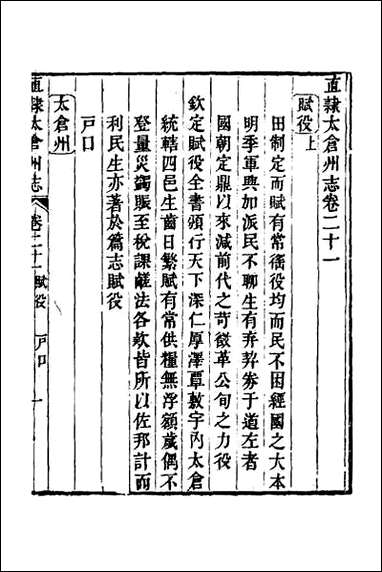 直隸太倉州志卷二十一
賦役上
田制定而賦有常徭役均而民不困經國之大本
明季軍興加派民不聊生有弃契券于道左者
國朝定鼎以來減前代之苛徵革公旬之力役
欽定賦役全書頒行天下深仁厚澤覃敷宇內太倉
統轄四邑生齒日繁賦有常供糧無浮額歲偶不
登量災蠲賑至稅課鹺法各款皆所以佐邦計而
利民生亦著於篇志賦役
戶口
太倉州
直隸太倉州志
卷二十一 賦役 戶口 一